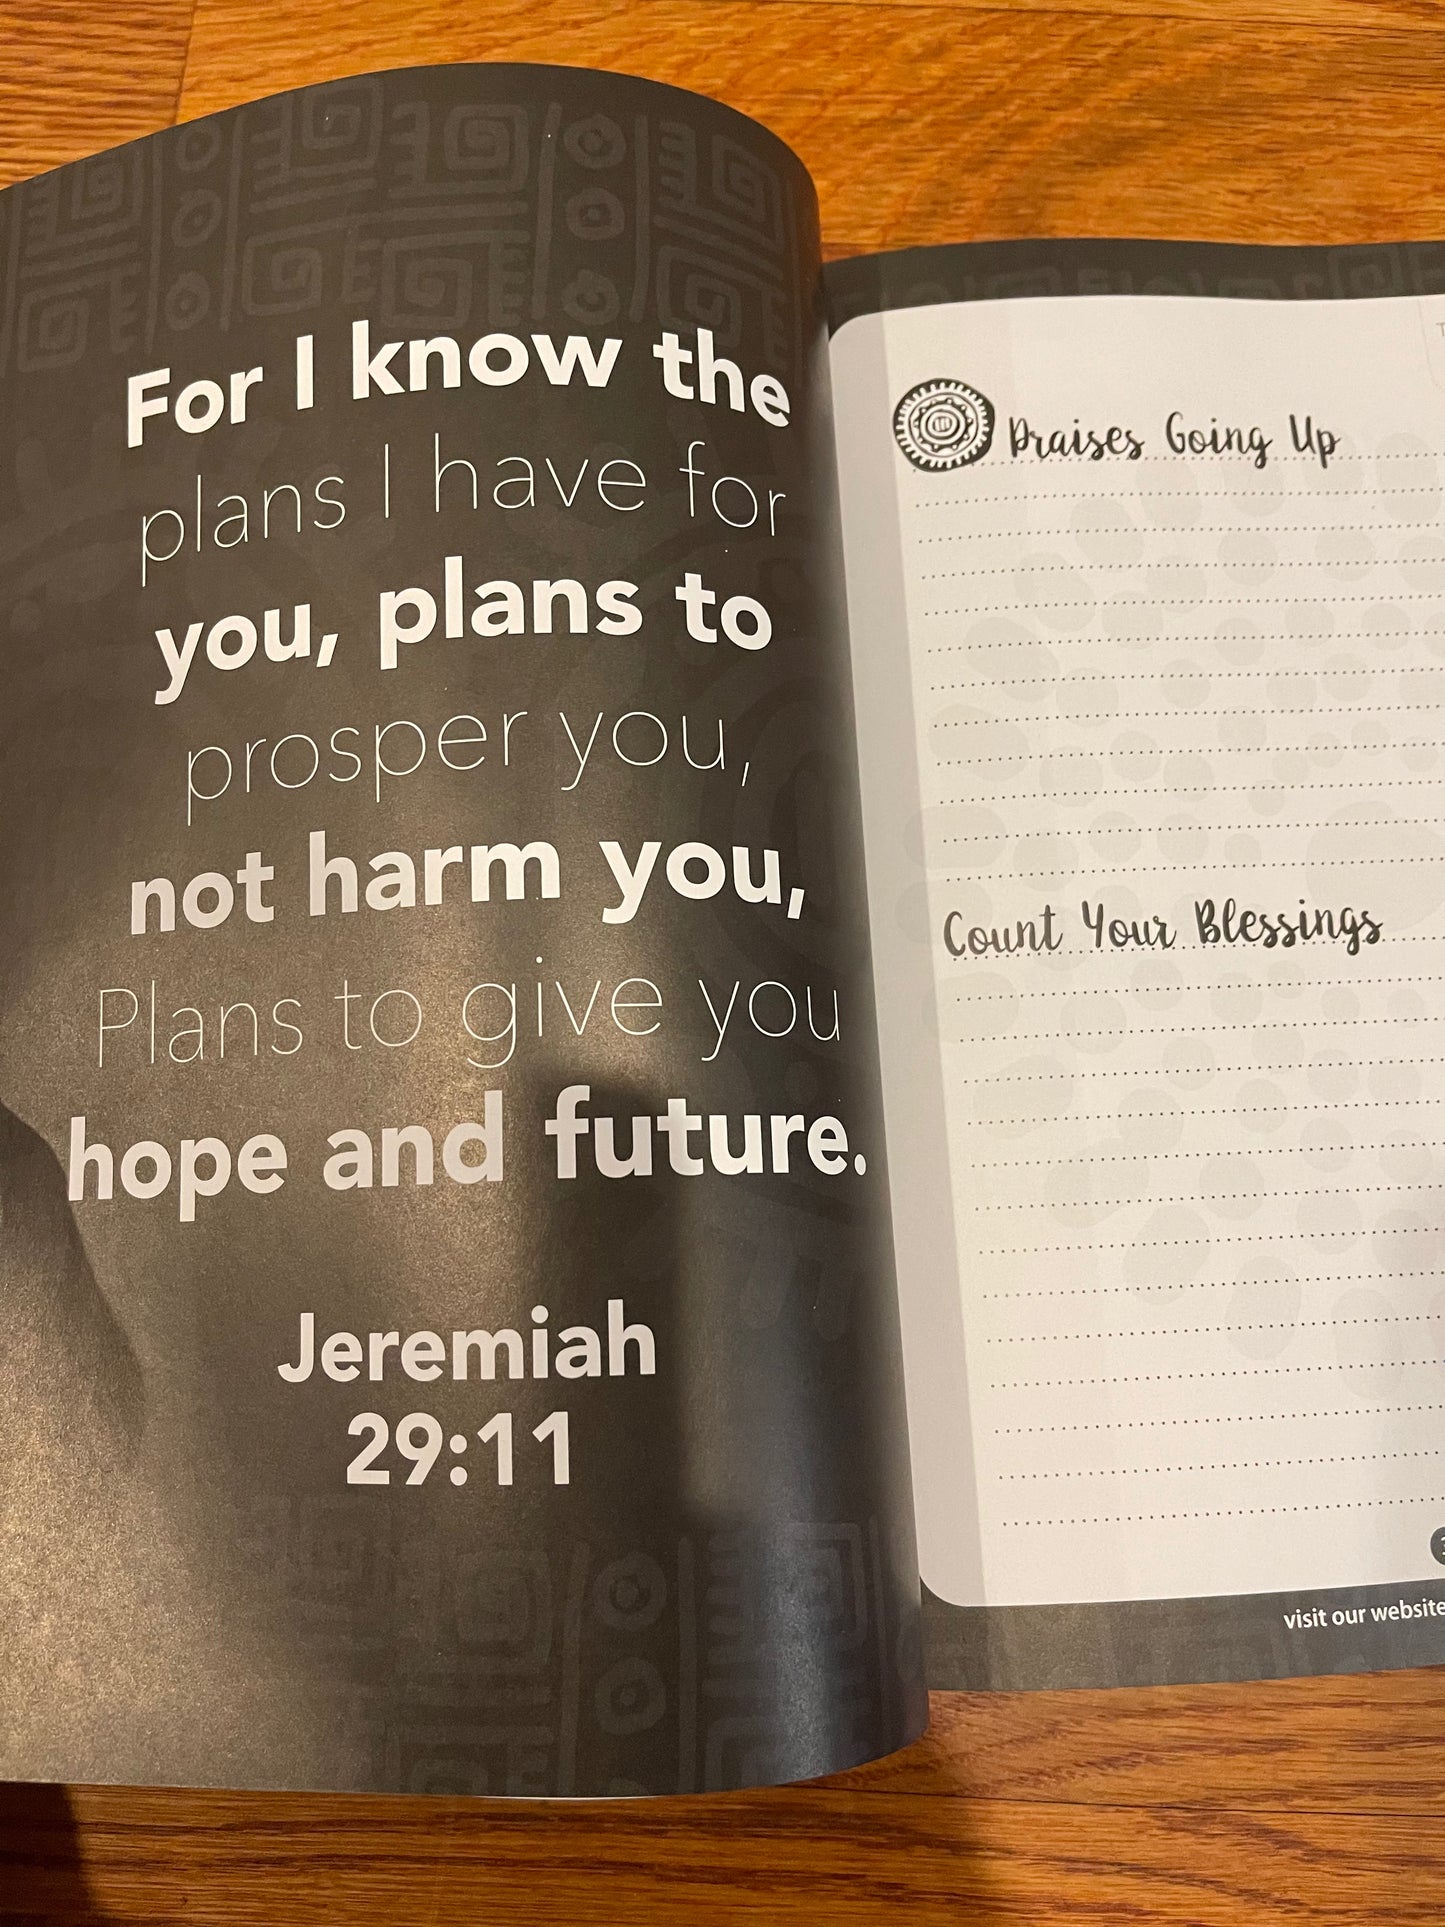 For I know the
plans I have for
you, plans to
prosper you,
not harm you,
Plans to give you
hope and future.
Jeremiah
29:11
Praises Going Up
Count Your Blessings
visit our website